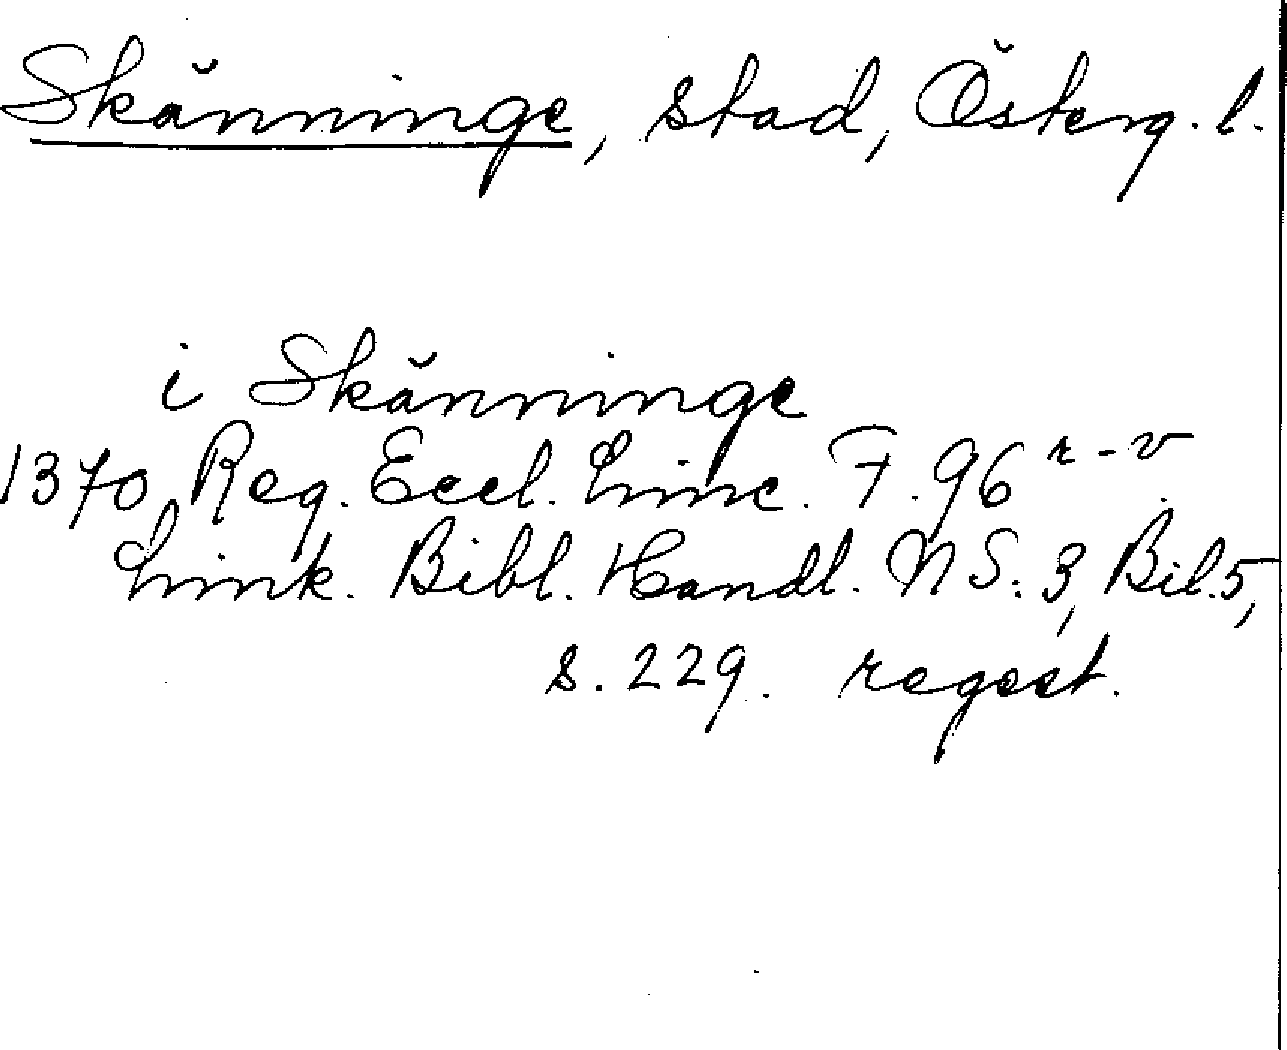 Skänninge, stad, Österg. l.
i Skänninge
1370 Reg. Eccl. Linc. F. 96 r-v
Link. Bibl. Handl. NS: 3, Bil. 5,
s. 229. regest.